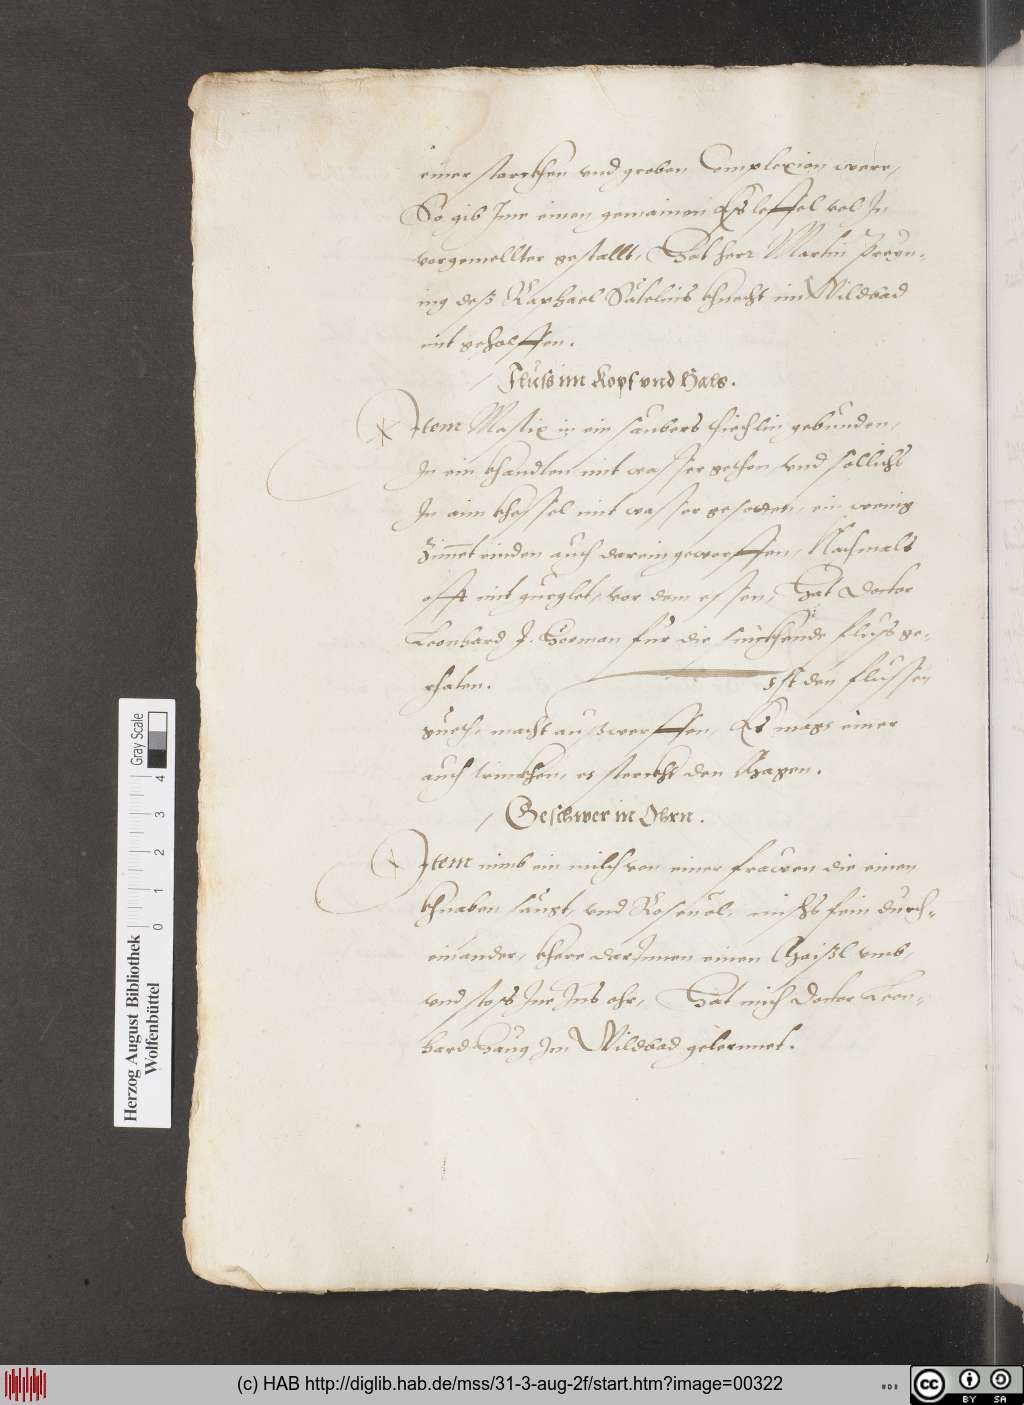 einer starckhen vnd groben Complexion were,
So gib Jme einen gemainen Eßleffel vol Jn
vorgemellter gestallt, Hat herr Martin
ing deß Raphael khnecht im Wildbad
mit geholffen.
Fluss im Kopf vnd Hals.
Jtem Mastix in ein saubers tiechlin gebunden,
Jn ein khandlen mit wasser gethon, vnd sollichs
Jn aim khessel mit wasser gesotten, ein wenig
Zimmet rinden auch darein geworffen, Nachmals
offt mit gurglet, vor dem essen, Hat Doctor
Leonhard J. Herman für die fluss ge-
rhaten. Jst den flussen
guet, macht außwerffen, Es mags einer
auch trinckhen, es sterckht den Magen.
Geschwer in Ohrn.
Jtem nimb ein milch von einer frawen die einen
khnaben saugt, vnd Rosenöl, mischs fein durch-
einander, khere darJnnen einen Maißl vmb,
vnd stoss Jne Jns ohr, Hat mich Doctor Leon-
hard Haug Jm Wildbad gelernnet.
Herzog August Bibliothek
Wolfenbüttel
0 1 2 3 4
Gray Scale
(c) HAB http://diglib.hab.de/mss/31-3-aug-2f/start.htm?image=00322
cc BY SA